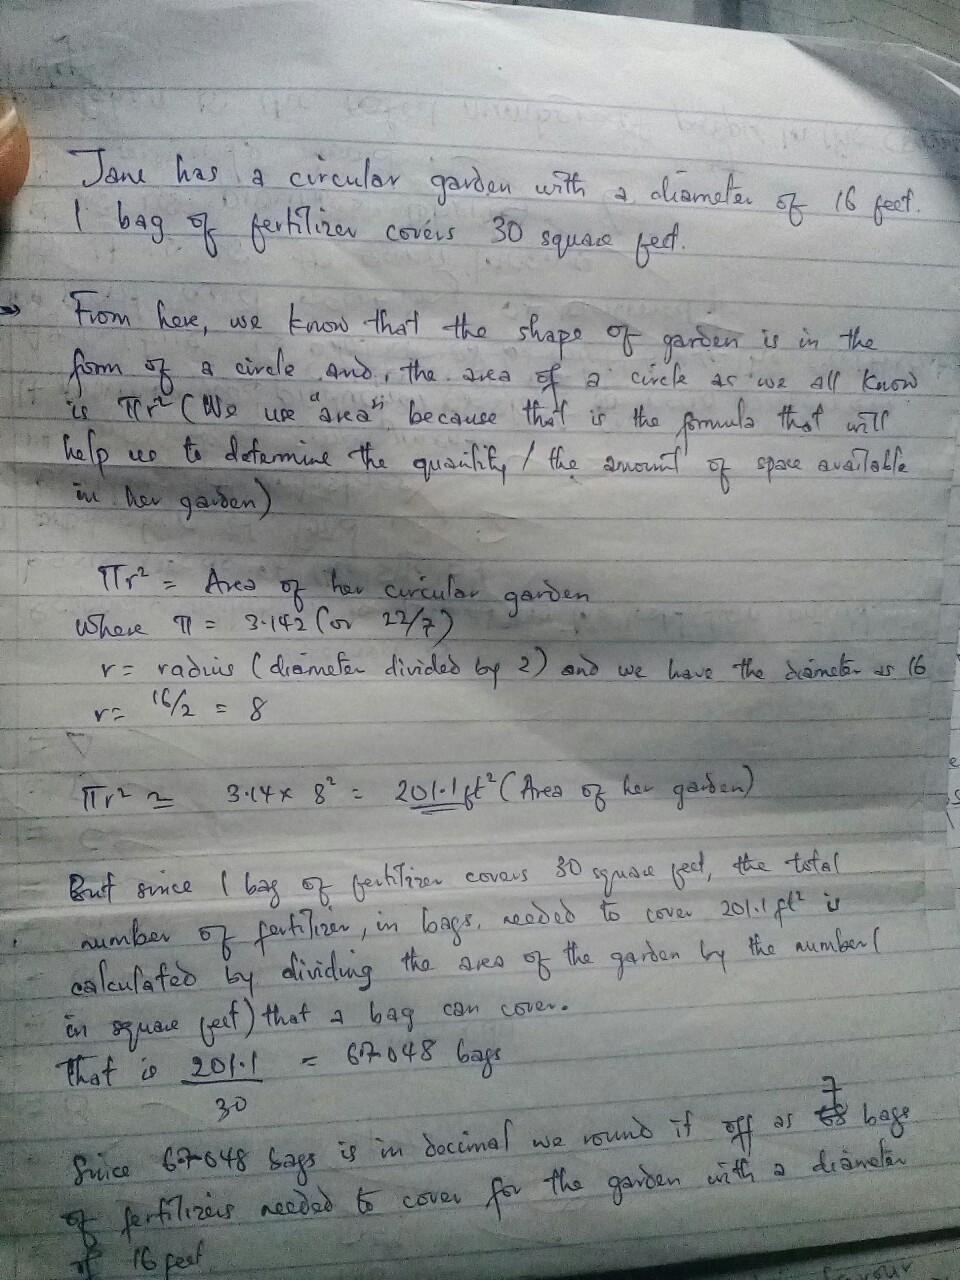 Jane has a circular garden with a diameter of 16 feet.
1 bag of fertilizer covers 30 square feet.
From here, we know that the shape of garden is in the
form of a circle and, the area of a circle as we all know
is πr² (We use "area" because that is the formula that will
help us to determine the quantity / the amount of space available
in her garden)
πr² = Area of her circular garden
Where π = 3.142 (or 22/7)
r = radius (diameter divided by 2) and we have the diameter as 16
r = 16/2 = 8
πr² = 3.14 x 8² = 201.1 ft² (Area of her garden)
But since 1 bag of fertilizer covers 30 square feet, the total
number of fertilizer, in bags, needed to cover 201.1 ft² is
calculated by dividing the area of the garden by the number (
in square feet) that a bag can cover.
That is 201.1 = 67.048 bags
30
7
Since 67.048 bags is in decimal we round it off as 68 bags
of fertilizers needed to cover for the garden with a diameter
of 16 feet